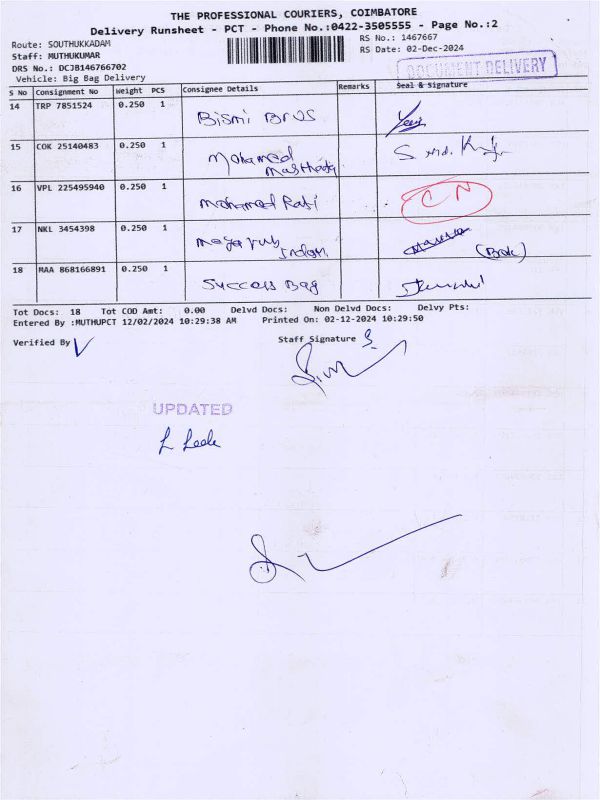 THE PROFESSIONAL COURIERS, COIMBATORE
Delivery Runsheet - PCT - Phone No.:0422-3505555 - Page No.:2
Route: SOUTHUKKADAM
RS No.: 1467667
Staff: MUTHUKUMAR
RS Date: 02-Dec-2024
DRS No.: DCJB146766702
DOCUMENT DELIVERY
Vehicle: Big Bag Delivery
S No Consignment No Weight PCS Consignee Details Remarks Seal & Signature
14 TRP 7851524 0.250 1 Bismi Brus
15 COK 25140483 0.250 1 Mohamed
16 VPL 225495940 0.250 1 Mohamed Rafi CN
17 NKL 3454398 0.250 1
18 MAA 868166891 0.250 1 Success Bag
Tot Docs: 18 Tot COD Amt: 0.00 Delvd Docs: Non Delvd Docs: Delvy Pts:
Entered By :MUTHUPCT 12/02/2024 10:29:38 AM Printed On: 02-12-2024 10:29:50
Verified By
Staff Signature
UPDATED